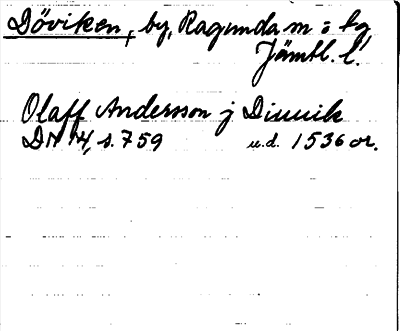 Döviken, by, Ragunda sn o tg
Jämtl. l.
Olaff Andersson j Diuuik
DN 14, s. 759 u.d. 1536 or.